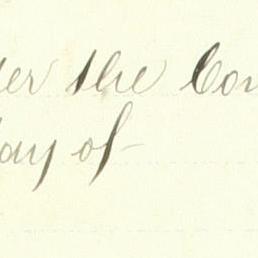 der the Con
day of